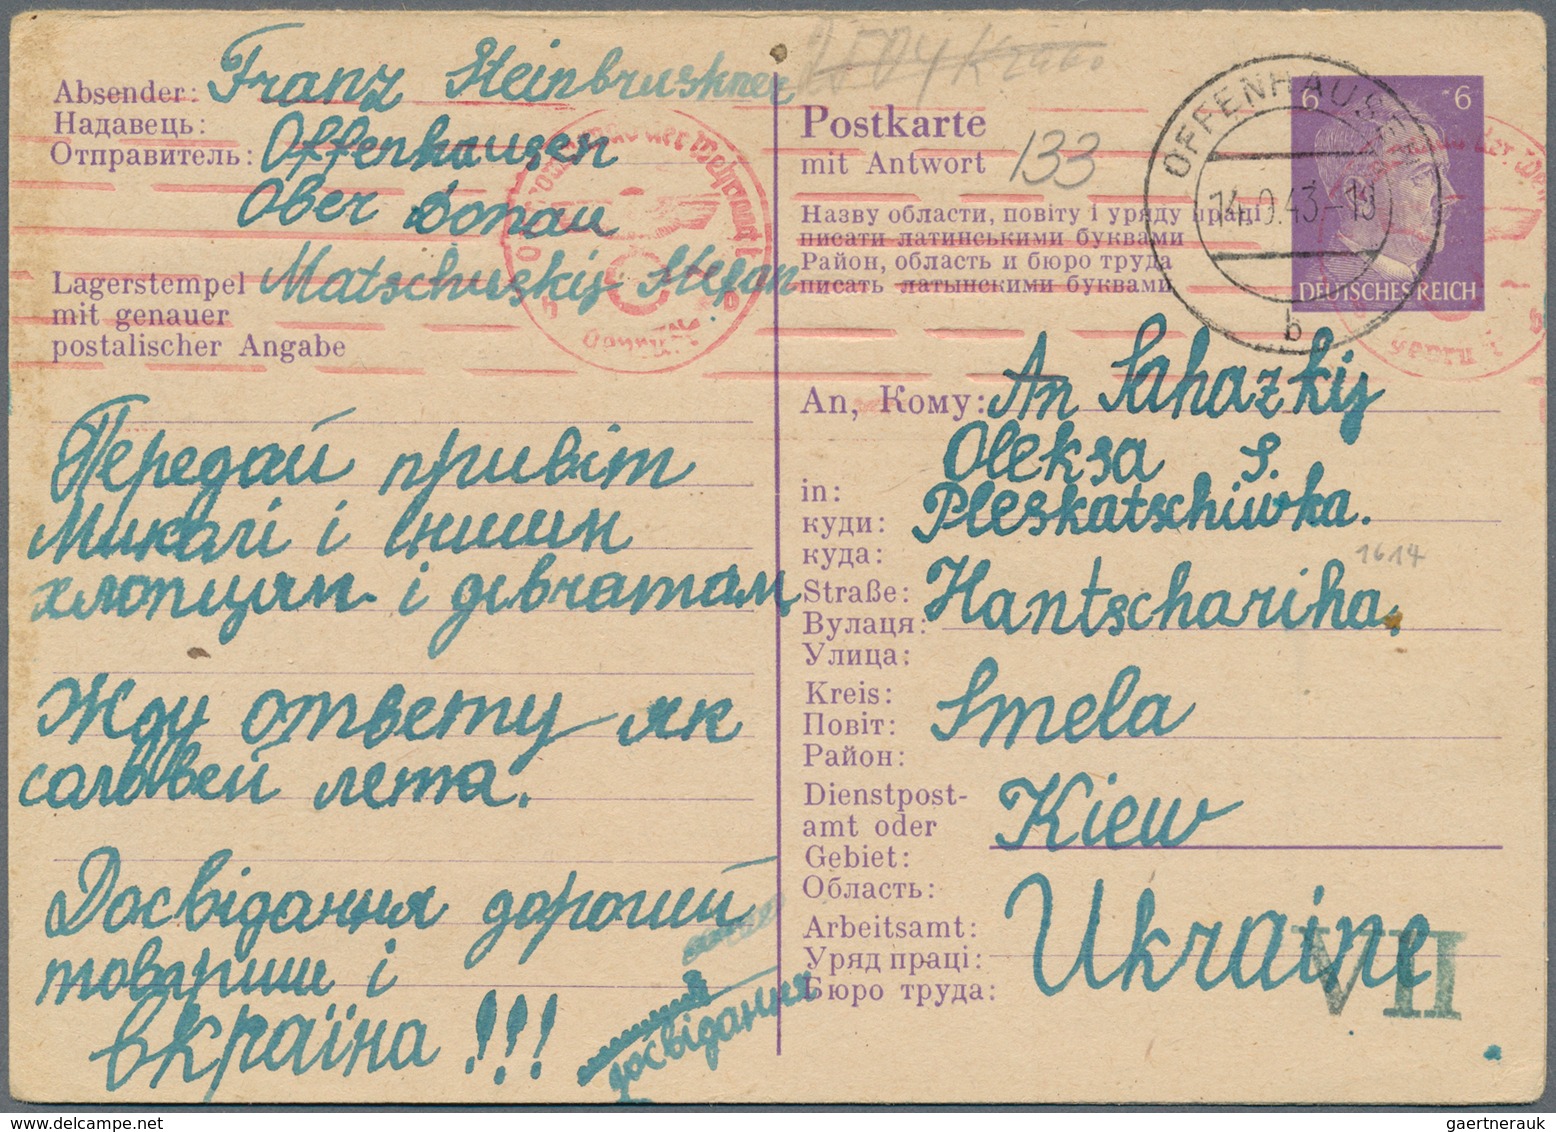 Absender: Franz Steinbruskner
Надавець: Offenhausen
Отправитель: Ober Donau
Lagerstempel Matschuskij Stefan
mit genauer
postalischer Angabe
Передай привіт
Миколі і іншим
хлопцям і дівчатам
Жду ответу як
соловей лета.
Досвідання дорогий
товариш і
Україна !!!
досвідання
Postkarte
mit Antwort 133
Назву области, повіту і уряду праці
писати латинськими буквами
Район, область и бюро труда
писать латынскими буквами
OFFENHAUSEN
14.9.43-18
b
6 6
DEUTSCHES REICH
An, Кому: An Sahazkij
Oleksa S.
in:
куди: Pleskatschiwka.
куда:
1614
Straße: Hantschariha.
Вулаця:
Улица:
Kreis:
Повіт: Smela
Район:
Dienstpost-
amt oder Kiew
Gebiet:
Область:
Arbeitsamt: Ukraine
Уряд праці:
Бюро труда:
VII
gaertnerauk